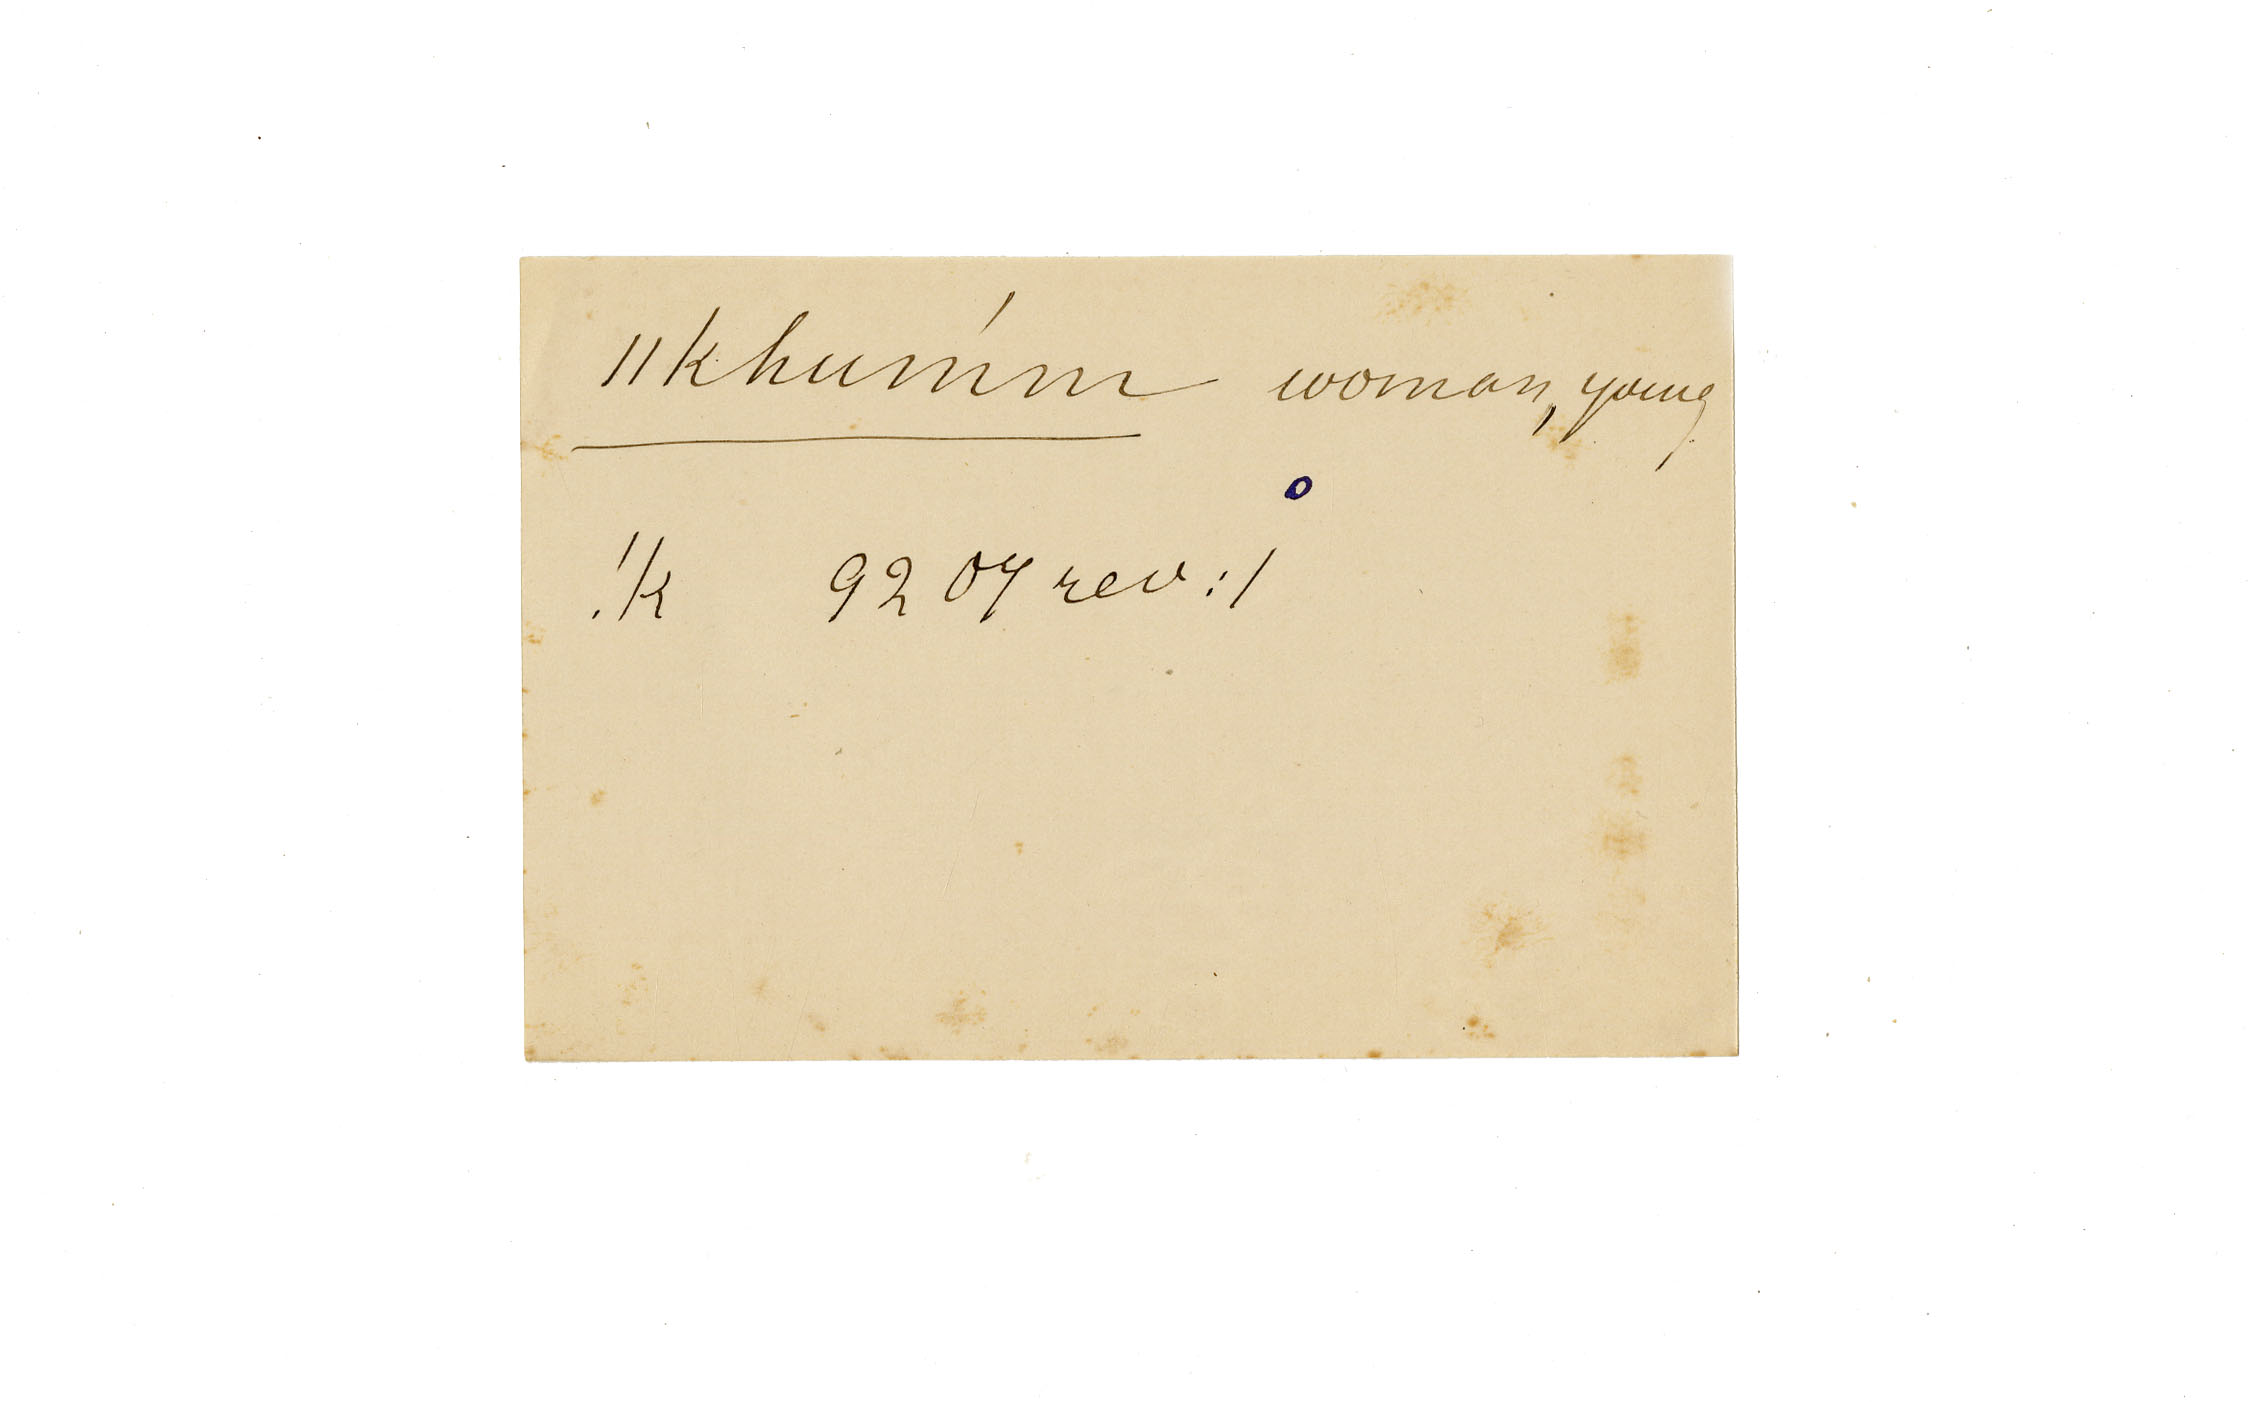 ǁkhum'm woman, young
!k 9207 rev:/